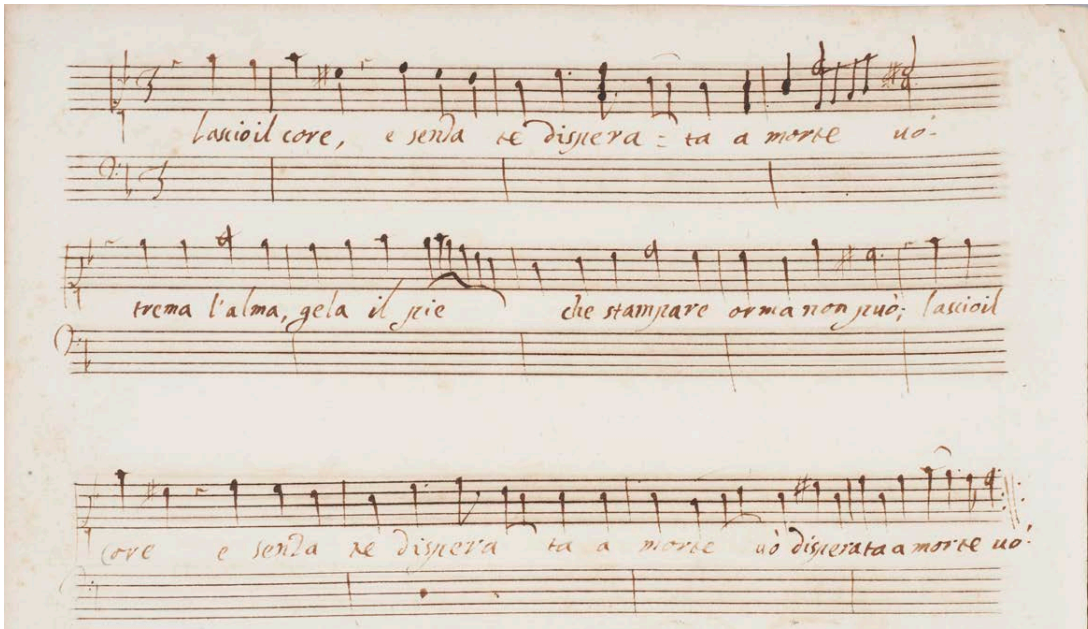 lascio il core, e senza te dispera - ta a morte uò.
trema l'alma, gela il pie che stampare orma non può; lascio il
core e senza te dispera ta a morte uò disperata a morte uò.